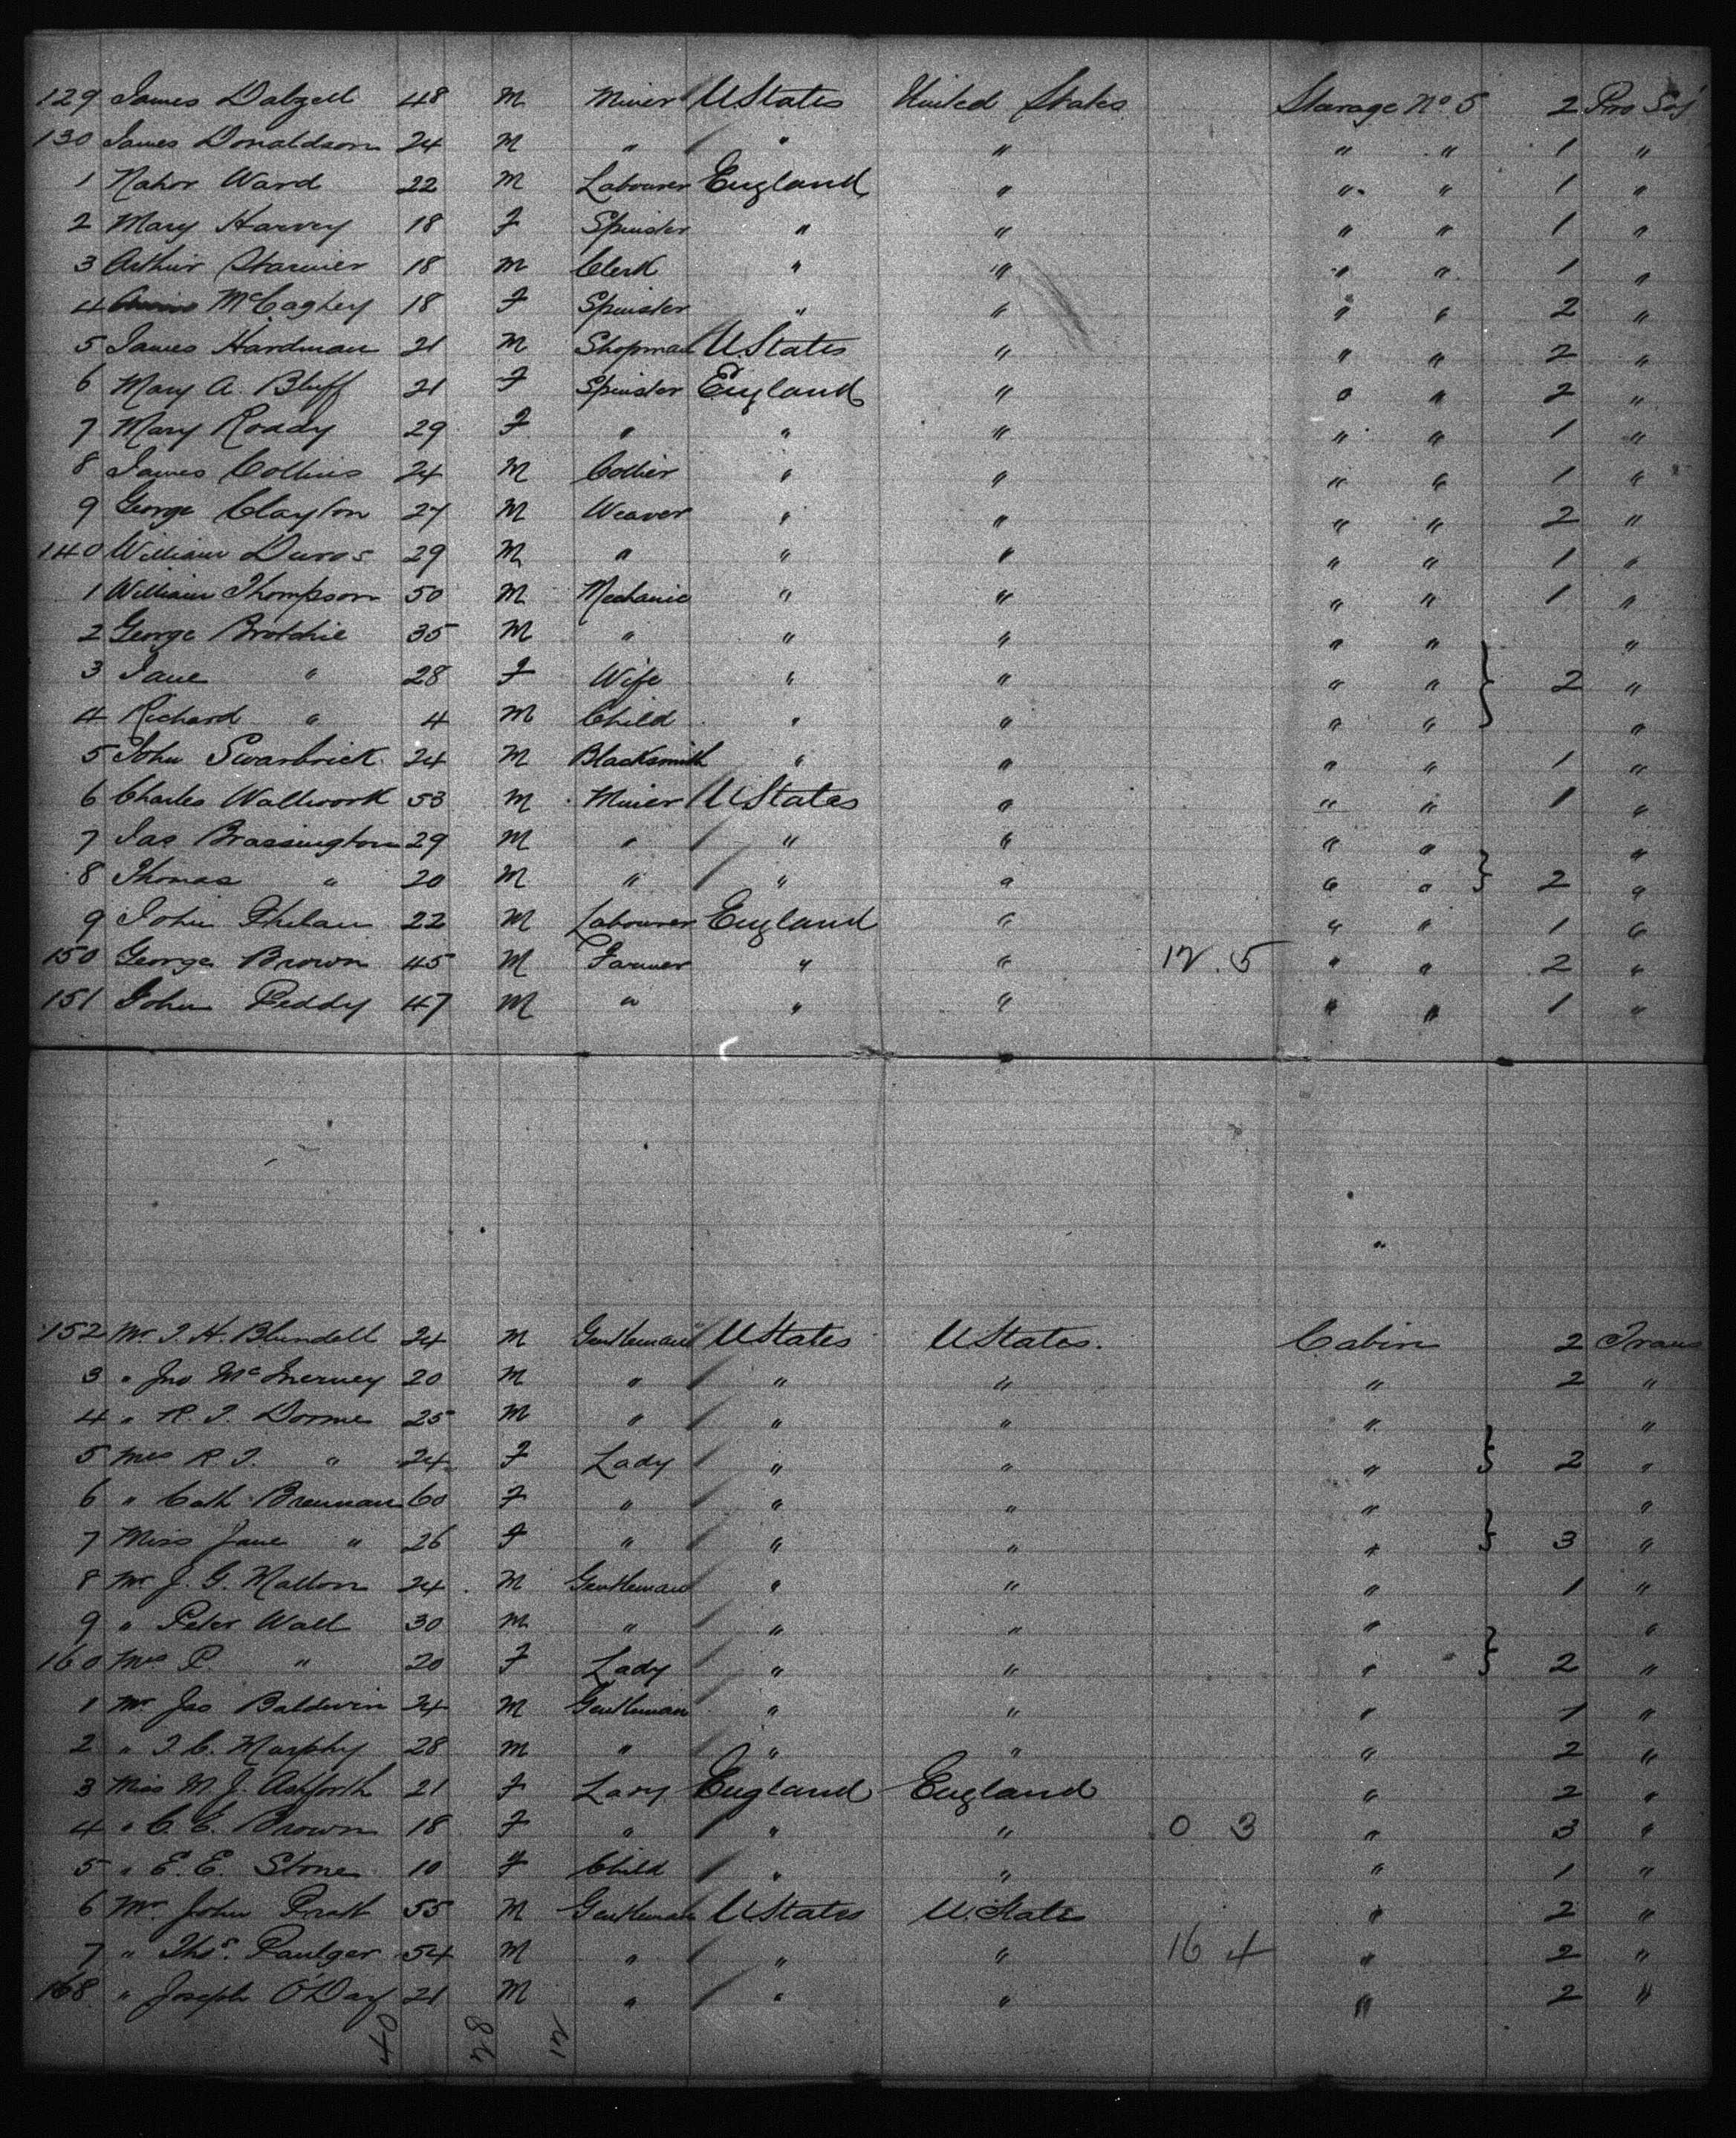 129 James Dalzell 48 M Miner UStates United States Steerage No. 5 2 Pro Soj
130 James Donaldson 24 M " " " " " 1 "
1 Nahor Ward 22 M Labourer England " " " 1 "
2 Mary Harvey 18 F Spinster " " " " 1 "
3 Arthur Starmer 18 M Clerk " " " " 1 "
4 McCaghey 18 F Spinster " " " " 2 "
5 James Hardman 21 M Shopman UStates " " " 2 "
6 Mary A. Bluff 21 F Spinster England " " " 2 "
7 Mary Roady 29 F " " " " " 1 "
8 James Collins 24 M Collier " " " " 1 "
9 George Clayton 27 M Weaver " " " " 2 "
140 William 29 M " " " " " 1 "
1 William Thompson 50 M Mechanic " " " " 1 "
2 George Brotchie 35 M " " " " " "
3 Jane " 28 F Wife " " " " } 2 "
4 Richard " 4 M Child " " " " "
5 John Swarbrick 24 M Blacksmith " " " " 1 "
6 Charles Wallwork 53 M Miner UStates " " " 1 "
7 Jas Brassington 29 M " " " " " "
8 Thomas " 20 M " " " " " } 2 "
9 John Phelan 22 M Labourer England " " " 1 "
150 George Brown 45 M Farmer " " 12. 5 " " 2 "
151 John Peddy 47 M " " " " " 1 "
"
152 Mr. T. H. Blundell 24 M Gentleman UStates UStates. Cabin 2 Trans
3 " Jno McInerney 20 M " " " " 2 "
4 " R. T. Dorme 25 M " " " " "
5 Mrs R. T. " 24 F Lady " " " } 2 "
6 " Cath Brennan 60 F " " " " "
7 Miss Jane " 26 F " " " " } 3 "
8 Mr J. G. Mallon 24 M Gentleman " " " 1 "
9 " Peter Wall 30 M " " " " "
160 Mrs P. " 20 F Lady " " " } 2 "
1 Mr Jas Baldwin 24 M Gentleman " " " 1 "
2 " T. C. Murphy 28 M " " " " 2 "
3 Miss M. J. Ashforth 21 F Lady England England " 2 "
4 " C. E. Brown 18 F " " " 0 3 " 3 "
5 " E. E. Stone 10 F Child " " " 1 "
6 Mr. John Pratt 55 M Gentleman UStates U. State " 2 "
7 " Thos. Paulger 54 M " " " 16 4 " 2 "
168 " Joseph O'Day 21 M " " " " 2 "
40